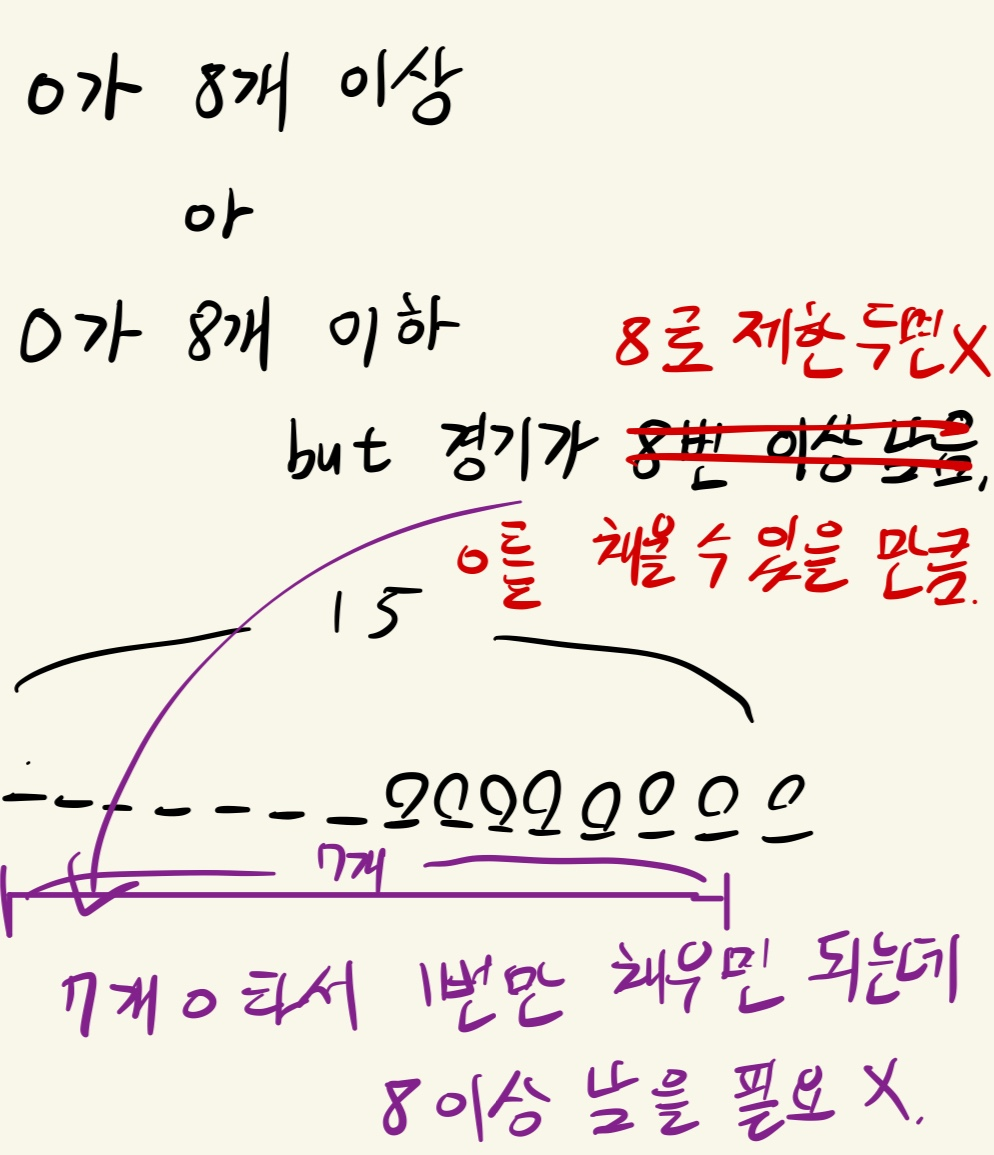 O가 8개 이상
or
O가 8개 이하
8로 제한두면X
but 경기가 8번 이상 남음.
O를 채울 수 있을 만큼.
15
O O O O O O O O
7개
7개 O 타서 1번만 채우면 되는데
8이상 남을 필요 X.